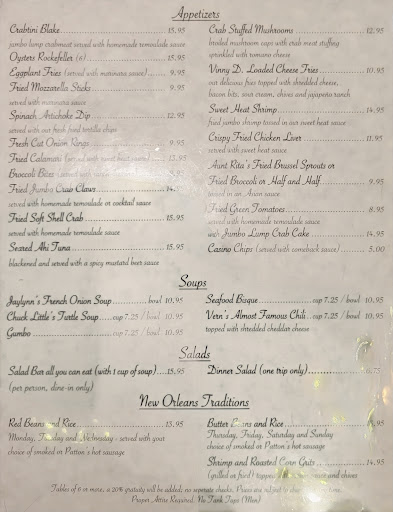 Appetizers
Crabtini Blake 15.95
jumbo lump crabmeat served with homemade remoulade sauce
Oysters Rockefeller (6) 15.95
Eggplant Fries (served with marinara sauce) 9.95
Fried Mozzarella Sticks 9.95
served with marinara sauce
Spinach Artichoke Dip 12.95
served with our fresh fried tortilla chips
Fresh Cut Onion Rings 9.95
Fried Calamari (served with sweet heat sauce) 13.95
Broccoli Bites 9.95
Fried Jumbo Crab Claws
served with homemade remoulade or cocktail sauce
Fried Soft Shell Crab 15.95
served with homemade remoulade sauce
Seared Ahi Tuna 15.95
blackened and served with a spicy mustard beer sauce
Crab Stuffed Mushrooms 12.95
broiled mushroom caps with crab meat stuffing
sprinkled with romano cheese
Vinny D. Loaded Cheese Fries 10.95
our delicious fries topped with shredded cheese,
bacon bits, sour cream, chives and jalapeño ranch
Sweet Heat Shrimp 14.95
fried jumbo shrimp tossed in our sweet heat sauce
Crispy Fried Chicken Liver 11.95
served with sweet heat sauce
Aunt Rita's Fried Brussel Sprouts or
Fried Broccoli or Half and Half 9.95
tossed in an Asian sauce
Fried Green Tomatoes 8.95
served with homemade remoulade sauce
with Jumbo Lump Crab Cake 14.95
Casino Chips (served with comeback sauce) 5.00
Soups
Jaylynn's French Onion Soup bowl 10.95
Chuck Little's Turtle Soup cup 7.25 / bowl 10.95
Gumbo cup 7.25 / bowl 10.95
Seafood Bisque cup 7.25 / bowl 10.95
Vern's Almost Famous Chili cup 7.25 / bowl 10.95
topped with shredded cheddar cheese
Salads
Salad Bar all you can eat (with 1 cup of soup) 15.95
(per person, dine-in only)
Dinner Salad (one trip only)
New Orleans Traditions
Red Beans and Rice 13.95
Monday, Tuesday and Wednesday - served with your
choice of smoked or Patton's hot sausage
Butter Beans and Rice
Thursday, Friday, Saturday and Sunday
choice of smoked or Patton's hot sausage
Shrimp and Roasted Corn Grits 14.95
(grilled or fried) topped sauce and chives
Tables of 6 or more, a 20% gratuity will be added; no seperate checks. Prices are subject to change at any time.
Proper Attire Required: No Tank Tops (Men)